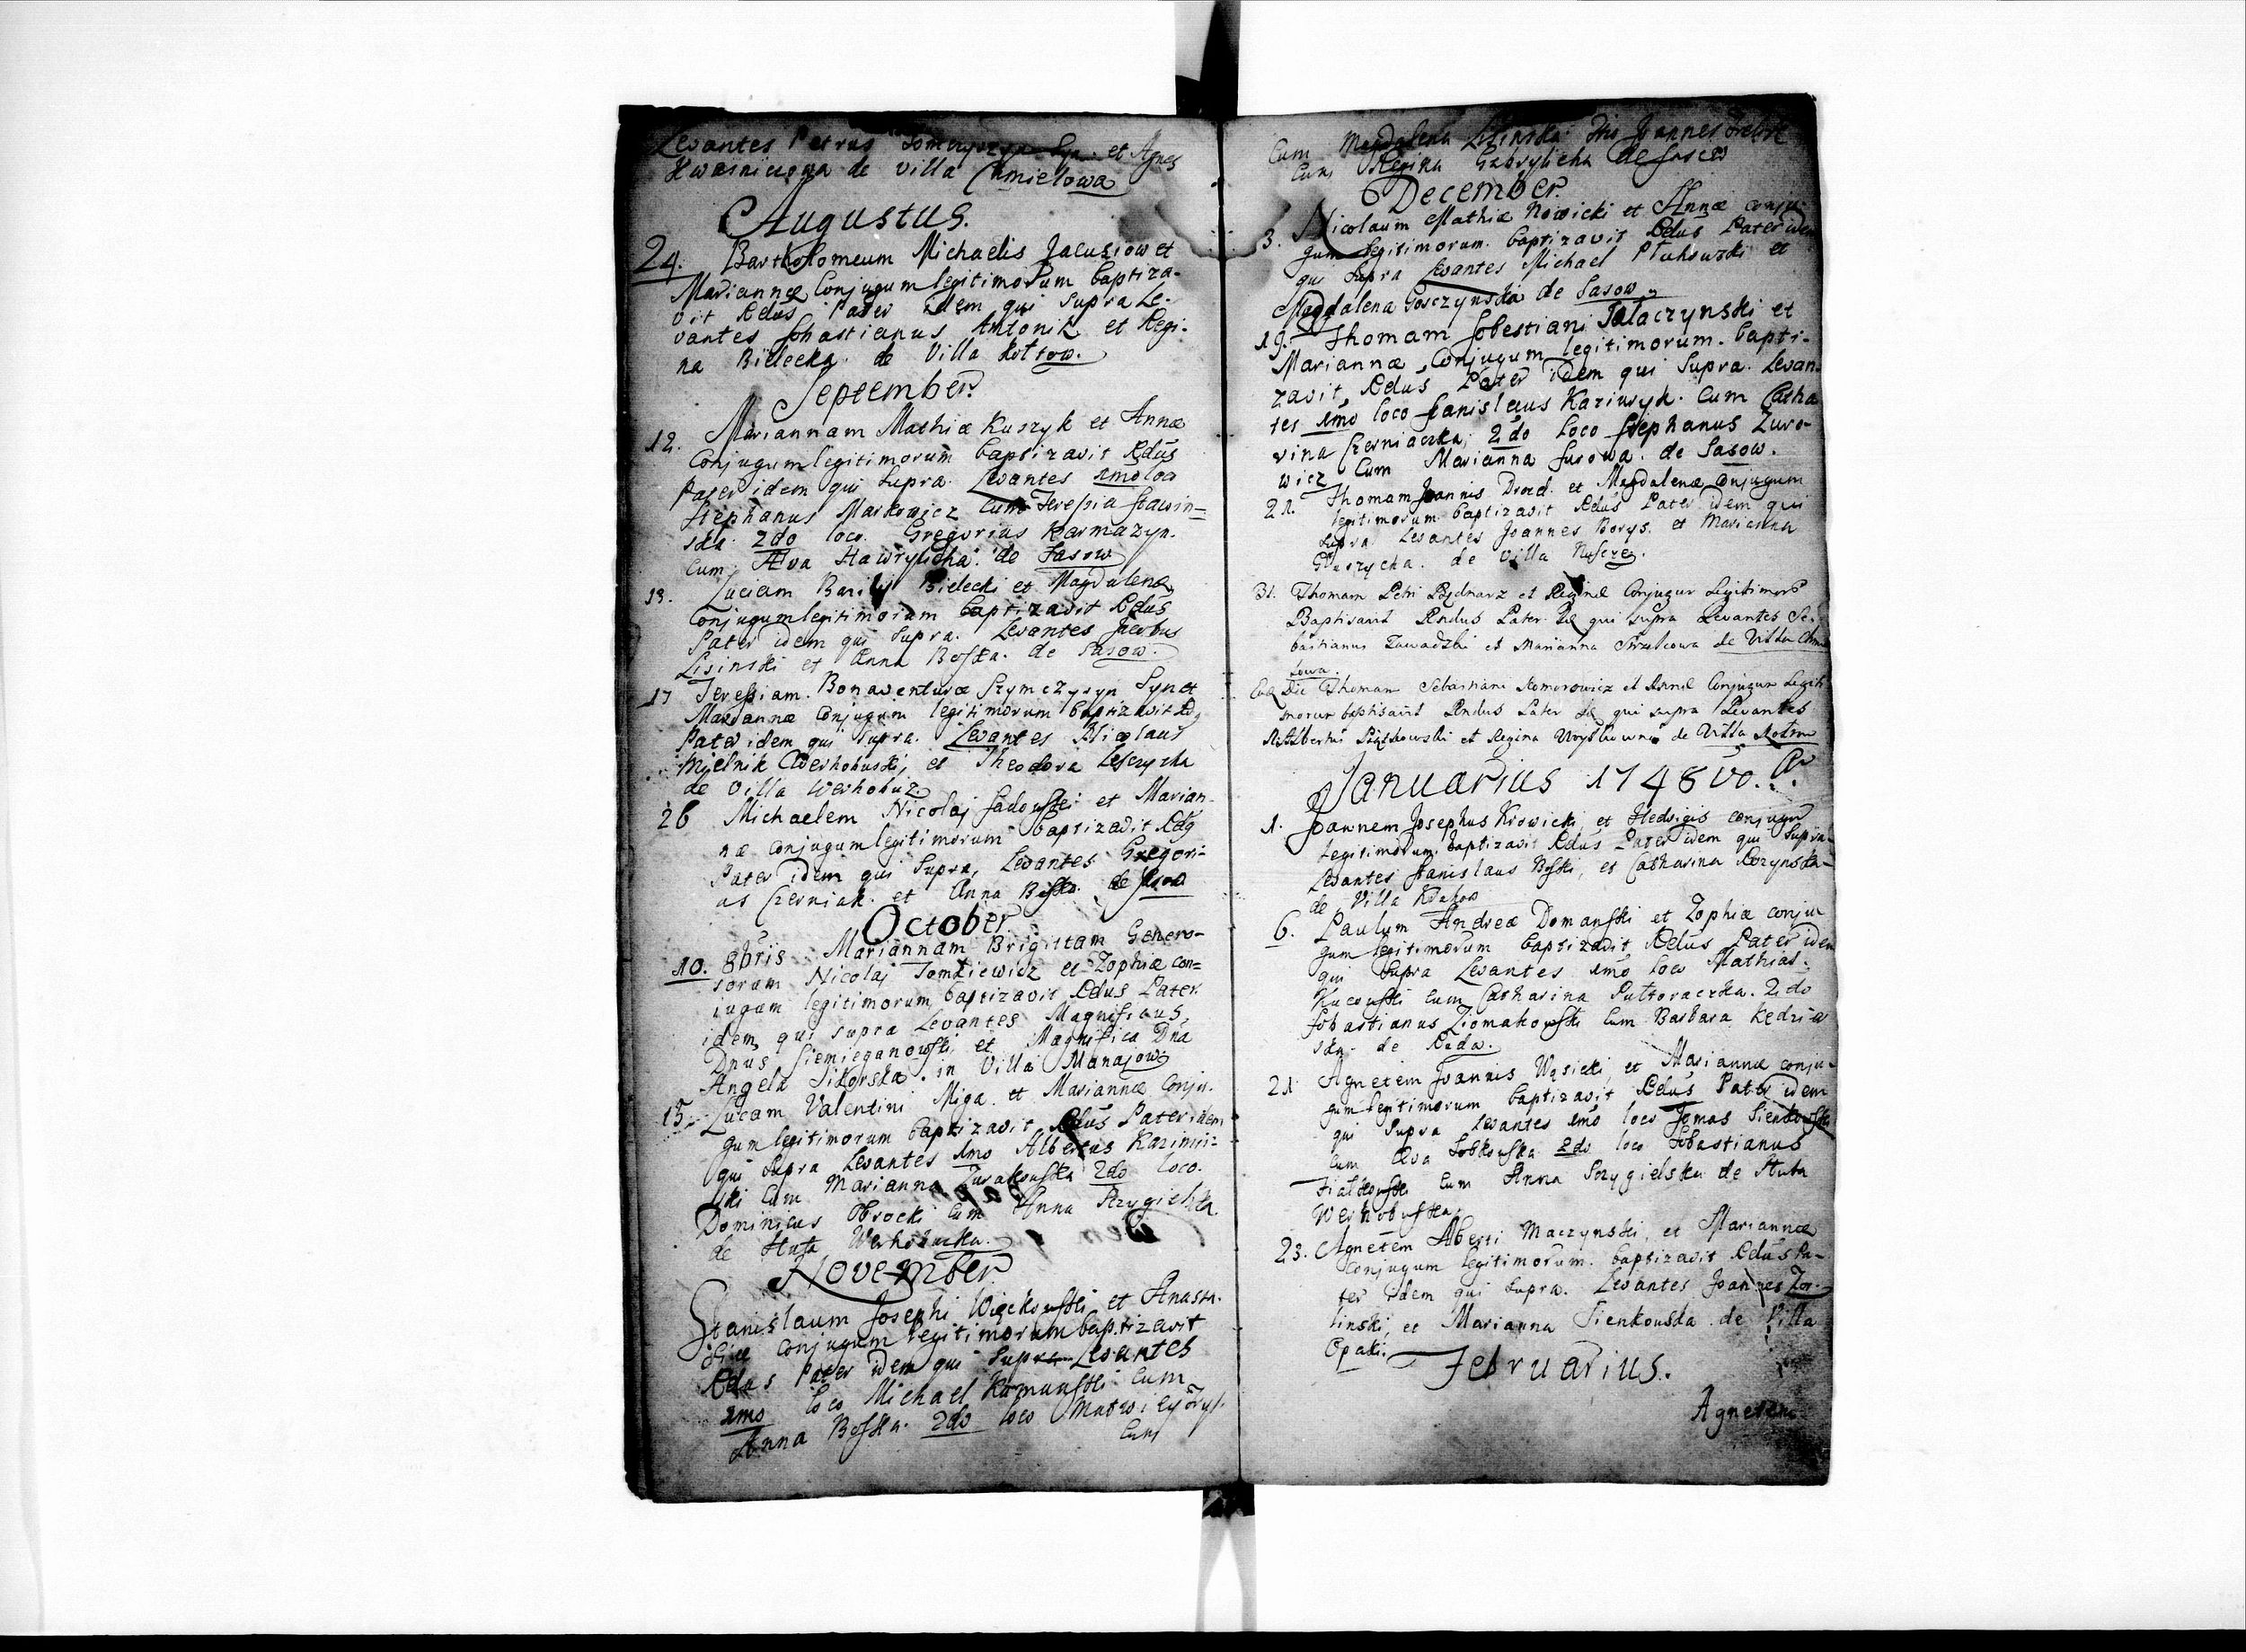 Levantes Petrus Tomczyszyn Syn. et Agnes
Kwasnicowa de villa Chmielowa
Augustus.
24. Bartholomeum Michaelis Jacusiow et
Mariannæ Conjugum legitimorum baptiza-
vit Rdus Pater idem qui supra Le-
vantes Sobastianus Antonik et Regi-
na Bielecka de Villa Kottow.
September.
12. Mariannam Mathiæ Kuszyk et Annæ
Conjugum legitimorum baptizavit Rdus
Pater idem qui supra. Levantes 1mo loco
Stephanus Markowicz cum Teresia Stawin=
ska 2do loco. Gregorius Karmazyn.
cum Æva Hawrylicha. de Sasow
13. Luciam Basilij Bielecki et Magdalenæ
Conjugum legitimorum baptizavit Rdus
Pater idem qui supra. Levantes Jacobus
Lisinski et Anna Boska. de Sasow.
17 Teressiam. Bonaventuræ Szymczyszyn Syn et
Mariannæ Conjugum legitimorum baptizavit Rdg
Pater idem qui supra. Levantes Nicolaus
Mielnik Werhobuski, et Theodora Leszczycha
de Villa Werhobuz
26 Michaelem Nicolaj Sadowski et Marian-
næ conjugum legitimorum baptizavit Rdg
Pater idem qui supra, Levantes Gregori-
us Czerniak. et Anna Boska. de Sasow
October.
10. 8bris Mariannam Brigittam Genero-
sorum Nicolaj Tomkiewicz et Zophiæ con=
iugum legitimorum baptizavit Rdus Pater
idem qui supra Levantes Magnificus
Dnus Siemieganowski et Magnifica Dna
Angela Sikorska. in Villa Manajow
15. Lucam Valentini Miga. et Mariannæ Conju-
gum legitimorum baptizavit Rdus Pater idem
qui supra Levantes 1mo Albertus Kazimir-
ski cum Marianna Zurakowska 2do loco.
Dominicus Obrocki cum Anna Strzygielska.
de Huta Werhobuzka.
November
Stanislaum Josephi Wieckowski et Anasta-
siæ Conjugum legitimorum baptizavit
Rdus Pater idem qui supra Levantes
1mo loco Michael Romanski cum
Anna Boska. 2do loco
Cum
Cum Magdalena Lisinska. 3tio Joannes
Cum Regina Gabrylicha de Sasow
December.
3. Nicolaum Mathiæ Nowicki et Annæ conju-
gum legitimorum. baptizavit Rdus Pater idem
qui supra Levantes Michael et
Magdalena Gosczynska de Sasow
19. Thomam Sobestiani Talaczynski et
Mariannæ, Conjugum legitimorum. bapti-
zavit, Rdus Pater idem qui supra. Levan
tes 1mo loco Stanislaus Kaziuryk. cum Catha
rina Czerniaczka, 2do loco Stephanus Zuro-
wicz cum Marianna Surowa. de Sasow.
21. Thomam Joannis Drozd. et Magdalenæ Conjugum
legitimorum baptizavit Rdus Pater idem qui
supra Levantes Joannes Borys. et Marianna
de Villa Nuscze.
31. Thomam Petri Bednarz et Reginæ Conjugum Legitimorum
Baptisavit Rndus Pater qui supra Levantes Se-
bastianus Zawadzki et Marianna Strzelcowa de Villa Chmie
lowa.
Eadem Die Thomam Sebastiani Komorowicz et Annæ Conjugum Legiti
morum baptisavit Rndus Pater qui supra Levantes
Albertus Piątkowski et Regina de Villa Kotow
Januarius 1748vo.
1. Joannem Josephus Krowicki et Hedvigis conjugum
legitimorum. baptizavit Rdus Pater idem qui supra
Levantes Stanislaus Boski, et Catharina
de Villa Kruhow
6. Paulum Andreæ Domanski et Zophiæ conju
gum legitimorum baptizavit Rdus Pater idem
qui supra Levantes 1mo loco Mathias.
Kucowski cum Catharina Puttoraczka. 2do
Sobastianus Ziomakowski cum Barbara Kedzier
ska. de Ruda.
21 Agnetem Joannis Wąsicki, et Mariannæ conju-
gum legitimorum baptizavit Rdus Pater idem
qui supra Levantes 1mo loco Tomas Sienkowski
cum Æva Sobkowska 2do loco Sobastianus
Fialkowski cum Anna Strzygielska de Huta
Werhobuska.
23. Agnetem Alberti Maczynski, et Mariannæ
Conjugum legitimorum. baptizavit Rdus Pa-
ter idem qui supra. Levantes Joannes Zor-
linski, et Marianna Sienkowska de Villa
Opaki.
Februarius.
Agnetem